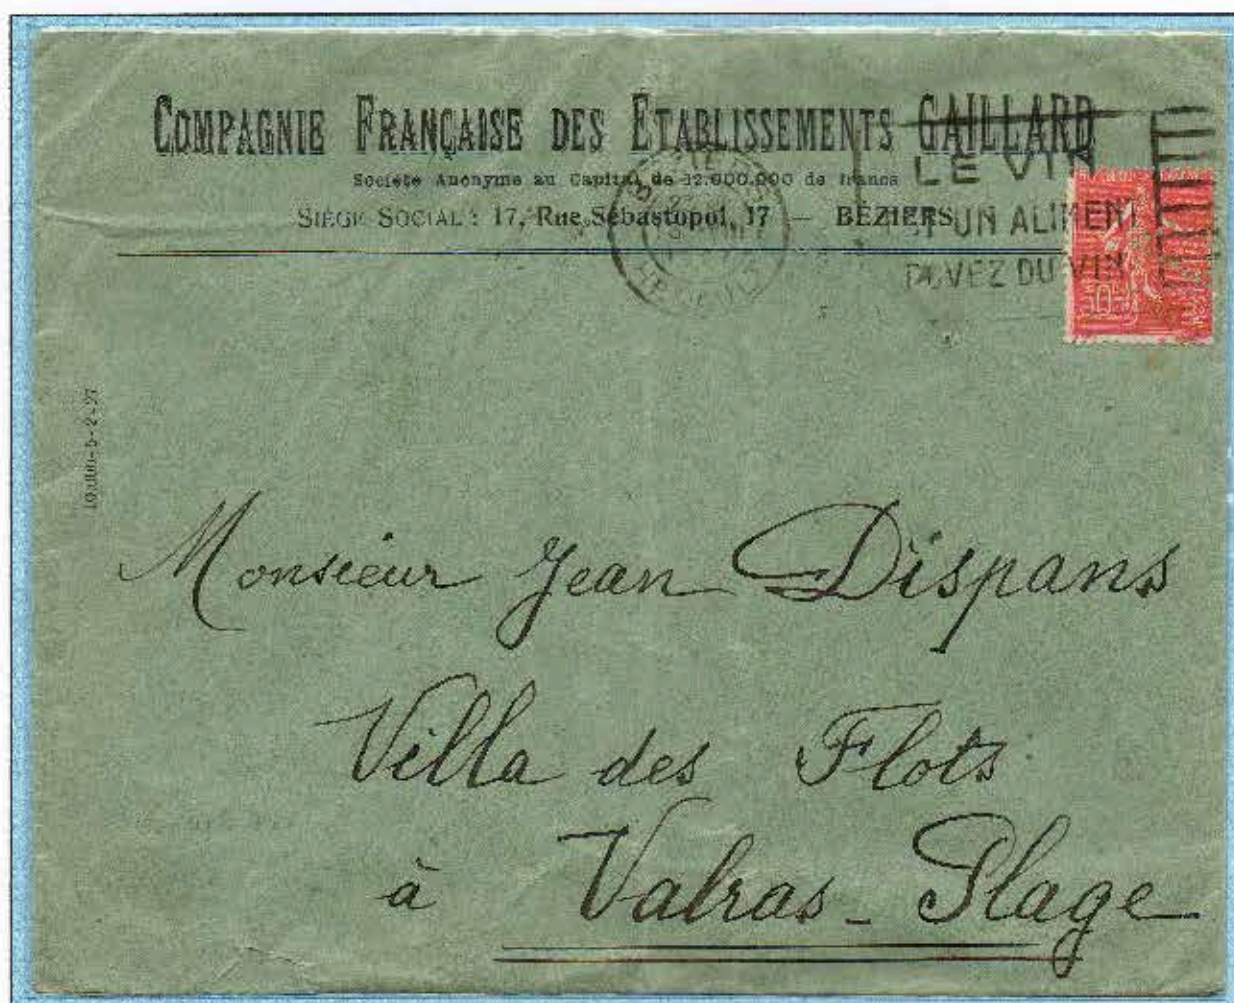 COMPAGNIE FRANÇAISE DES ETABLISSEMENTS GAILLARD
Société Anonyme au Capital de 12.000.000 de francs
SIÈGE SOCIAL : 17, Rue Sébastopol, 17 — BÉZIERS
BEZIERS
HERAULT
LE VIN
EST UN ALIMENT
BUVEZ DU VIN
10.000-5-2-27
Monsieur Jean Dispans
Villa des Flots
à Valras-Plage